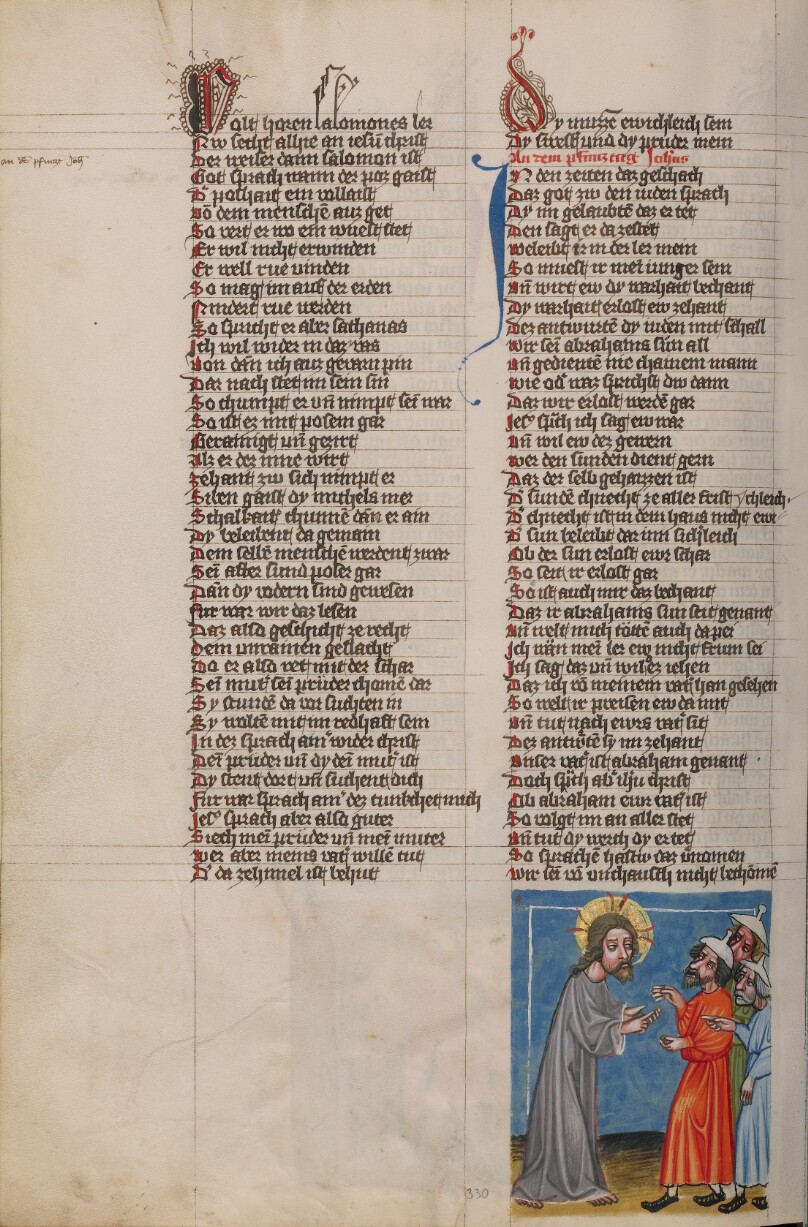 Wolt horen salomones ler
Nw secht alhie an iesu christ
Der weiser dann salomon ist
Got sprach wann der poz gaist
Dͤ pozhait ein vollaist
Võ dem menschē auz get
So vert er wo ein wuest stet
Er wil nicht erwinden
Er well rue vinden
So mag im auf der erden
Nindert rue werden
So spricht er aber sathanas
Ich wil wider in daz vas
Von dan ich auz gevarn pin
Dar nach stet im sein sin
So chumpt er vñ nimpt sei war
So ist er mit posem gar
Gerainigt vñ geziert
Alz er der inne wirt
Zehant zw sich nimpt er
Siben gaist dy michels mer
Schalkait chunnē dan er ain
Dy beleibent da gemain
Dem selbē menschē werdent zwar
Sei after sund poser gar
Dan dy vodern sind gewesen
Fur war wir daz lesen
Daz also geschicht ze recht
Dem unrainen geslacht
Do er also ret mit der schar
Sei mut' sei prüder chomē dar
Sy stundē da vor suchten in
Sy woltē mit im redhaft sein
In der sprach am' wider christ
Dei prüder vñ dy dei mut' ist
Dy stent dort vñ suchent dich
Fur war sprach am' des tunkchet mich
Jes' sprach aber also guter
Siech mei prüder vñ mei muter
Wer aber meins vat' willē tut
Dͤ da ze himel ist behut
Dy muzzē ewichleich sein
Dy swest' und dy prüder mein
an dē pfincz Joh
An dem pfincztag Johs
In den zeiten daz geschach
Daz got zw den iuden sprach
Dy im gelaubtē daz er tet
Den sagt er da ze stet
Weleibt ir in der ler mein
So muest ir mei iunger sein
Vñ wirt ew dy warhait bechant
Dy warhait erlost ew zehant
Dez antwurtē dy iuden mit schall
Wir sei abrahams sun all
Vñ gedientē nie chainem mann
Wie od' waz sprichst dw dann
Daz wir erlost werdē gar
Jes' sp'ch ich sag ew war
Vñ wil ew dez gewern
Wer den sunden dient gern
Daz der selb gehaizzen ist
Dͤ sundē chnecht ze aller frist
Dͤ chnecht ist in dem haus nicht ewichleich
Dͤ sun beleibt dar inn sich'leich
Ob der sun erlost ewr schar
So seit ir erlost gar
So ist auch mir daz bechant
Daz ir abrahams sun seit genant
Vñ welt mich tötē auch da pei
Ich wän mei ler ew nicht frum sei
Ich sag daz vñ wil ez iehen
Daz ich võ meinem vat' han gesehen
So welt ir preisen ew da mit
Vñ tut nach ewrs vat' sit
Dez antw'tē sy im zehant
Vnser vat' ist abraham genant
Doch sp'ch ab' iesu christ
Ob abraham eur vat' ist
So volgt im an aller stet
Vñ tut dy werch dy er tet
So sprachē hastiv daz vnomen
Wir sei võ vnchausch nicht bechomē
330